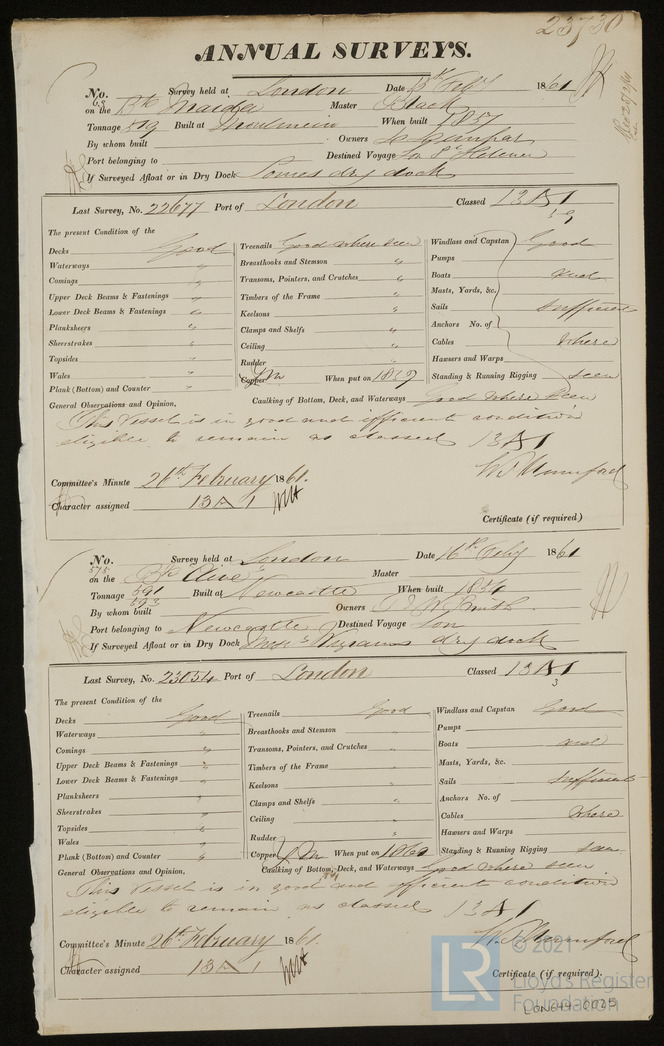 23730
ANNUAL SURVEYS.
No. 63 Survey held at London Date Feby 1861
on the Bk Maida Master Black
Tonnage 519 Built at Moulmein When built 1837
By whom built Owners
Port belonging to Destined Voyage for St Helena
If Surveyed Afloat or in Dry Dock dry dock
Last Survey, No. 22677 Port of London Classed 13 A 1
The present Condition of the
Decks Good
Waterways "
Comings "
Upper Deck Beams & Fastenings "
Lower Deck Beams & Fastenings "
Planksheers "
Sheerstrakes "
Topsides "
Wales "
Plank (Bottom) and Counter "
Treenails Good where seen
Breasthooks and Stemson "
Transoms, Pointers, and Crutches "
Timbers of the Frame "
Keelsons "
Clamps and Shelfs "
Ceiling "
Rudder "
Copper YM When put on
Windlass and Capstan Good
Pumps
Boats and
Masts, Yards, &c.
Sails sufficient
Anchors No. of
Cables where
Hawsers and Warps
Standing & Running Rigging seen
General Observations and Opinion, Caulking of Bottom, Deck, and Waterways Good where seen
This Vessel is in good and efficient condition
eligible to remain as classed 13 A 1
Committee's Minute 26th February 1861.
Character assigned 13 A 1
Certificate (if required)
No. 575 Survey held at London Date 16th Feby 1861
on the Bk Clive Master
Tonnage 591 593 Built at Newcastle When built 1854
By whom built Owners Smith
Port belonging to Newcastle Destined Voyage
If Surveyed Afloat or in Dry Dock dry dock
Last Survey, No. 23054 Port of London Classed 13 A 1
3
The present Condition of the
Decks Good
Waterways "
Comings "
Upper Deck Beams & Fastenings "
Lower Deck Beams & Fastenings "
Planksheers "
Sheerstrakes "
Topsides "
Wales "
Plank (Bottom) and Counter "
Treenails Good
Breasthooks and Stemson "
Transoms, Pointers, and Crutches "
Timbers of the Frame "
Keelsons "
Clamps and Shelfs "
Ceiling "
Rudder "
Copper YM When put on 1860
Windlass and Capstan Good
Pumps
Boats and
Masts, Yards, &c.
Sails sufficient
Anchors No. of
Cables where
Hawsers and Warps
Standing & Running Rigging seen
General Observations and Opinion, Caulking of Bottom, Deck, and Waterways Good where seen
This Vessel is in good and efficient condition
eligible to remain as classed 13 A 1
Committee's Minute 26th February 1861.
Character assigned 13 A 1
Certificate (if required).
LR © 2021
Lloyd's Register
Foundation
LON644-0025